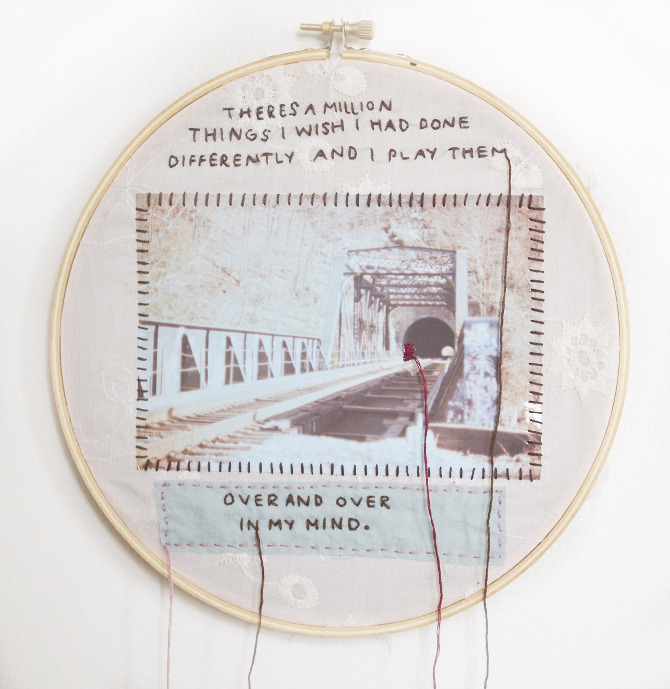 THERES A MILLION
THINGS I WISH I HAD DONE
DIFFERENTLY AND I PLAY THEM
OVER AND OVER
IN MY MIND.